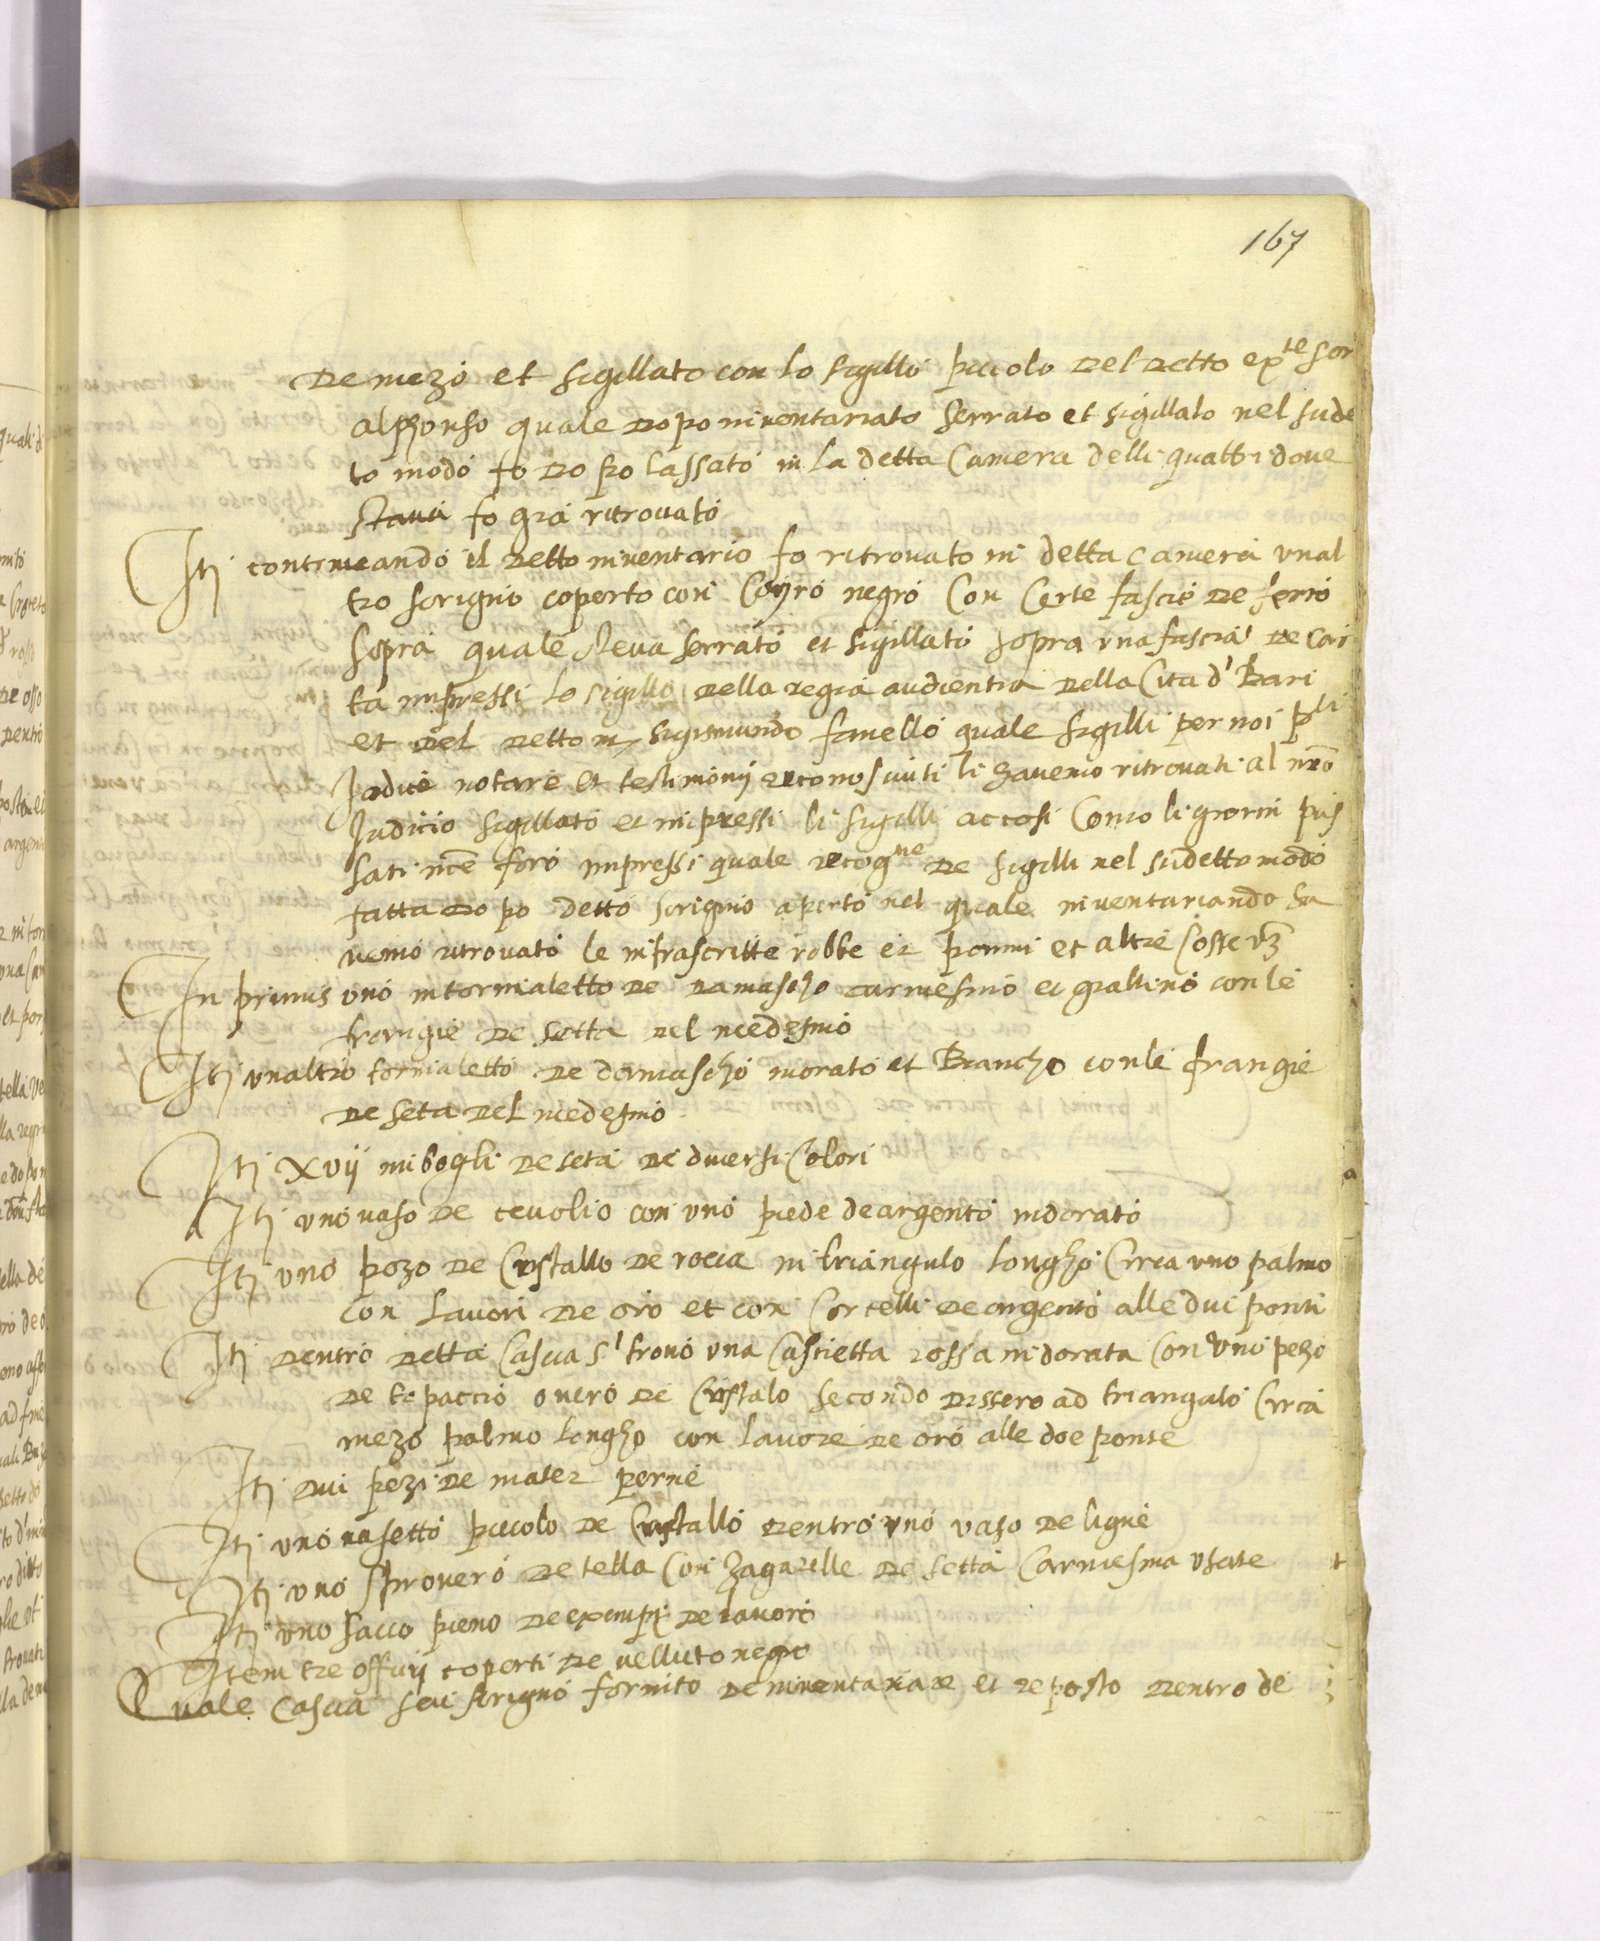 167
de mezo et sigillato con lo sigillo piccolo del detto ex.te s.or
alphonso quale dopo inventariato serrato et sigillato nel sude
to modo fo dopo lassato in la detta Camera delli quattri dove
stava fo gia ritrovato
Itj contineando il detto inventario fo ritrovato in detta camera unal
tro scrignio coperto con Coyro negro Con Certe fascie de ferro
sopra quale steva serrato et sigillato sopra una fascia de car
ta impressi lo sigillo della regia audientia della Cita d' Bari
et del detto m sigismundo fanello quale sigilli per noi p.ti
Judice notare et testimonij reconosciuti li havemo ritrovati al nro
Judicio sigillato et impressi li sigilli accosi Como li giorni pas
sati foro impressi quale recog.ne de sigilli nel sudetto modo
fatta dopo detto scrignio aperto nel quale inventariando ha
vemo ritrovato le infrascritte robbe et panni et altre Cosse vz
In primis uno intornialetto de damascho carmesino et gialtino con le
frangie de setta del medesmo
Itj unaltro tornialetto de damascho morato et Biancho con le frangie
de seta del medesmo
Itj xvij imbogli de seta de diversi Colori
Itj uno vaso de cevolio con uno piede de argento indorato
Itj uno pezo de Cristallo de rocca in triangulo longho Circa uno palmo
con lavori de oro et con Cortelli de argento alle dui ponti
Itj dentro detta Cascia s' trovo una Cascietta rossa indorata Con uno pezo
de topaccio overo de Cristalo secondo dissero ad triangulo Circa
mezo palmo longho con lavore de oro alle doe ponte
Itj dui pezi de mater perne
Itj uno vasetto piccolo de Cristallo dentro uno vaso de ligne
Itj uno sproverо de tella Con zagarelle de setta Carmesina usate
Itj uno sacco pieno de exempi de lavoro
Item tre officij coperti de velluto negro
Quale Cascia seu scrigno fornito de inventariare et reposto dentro de